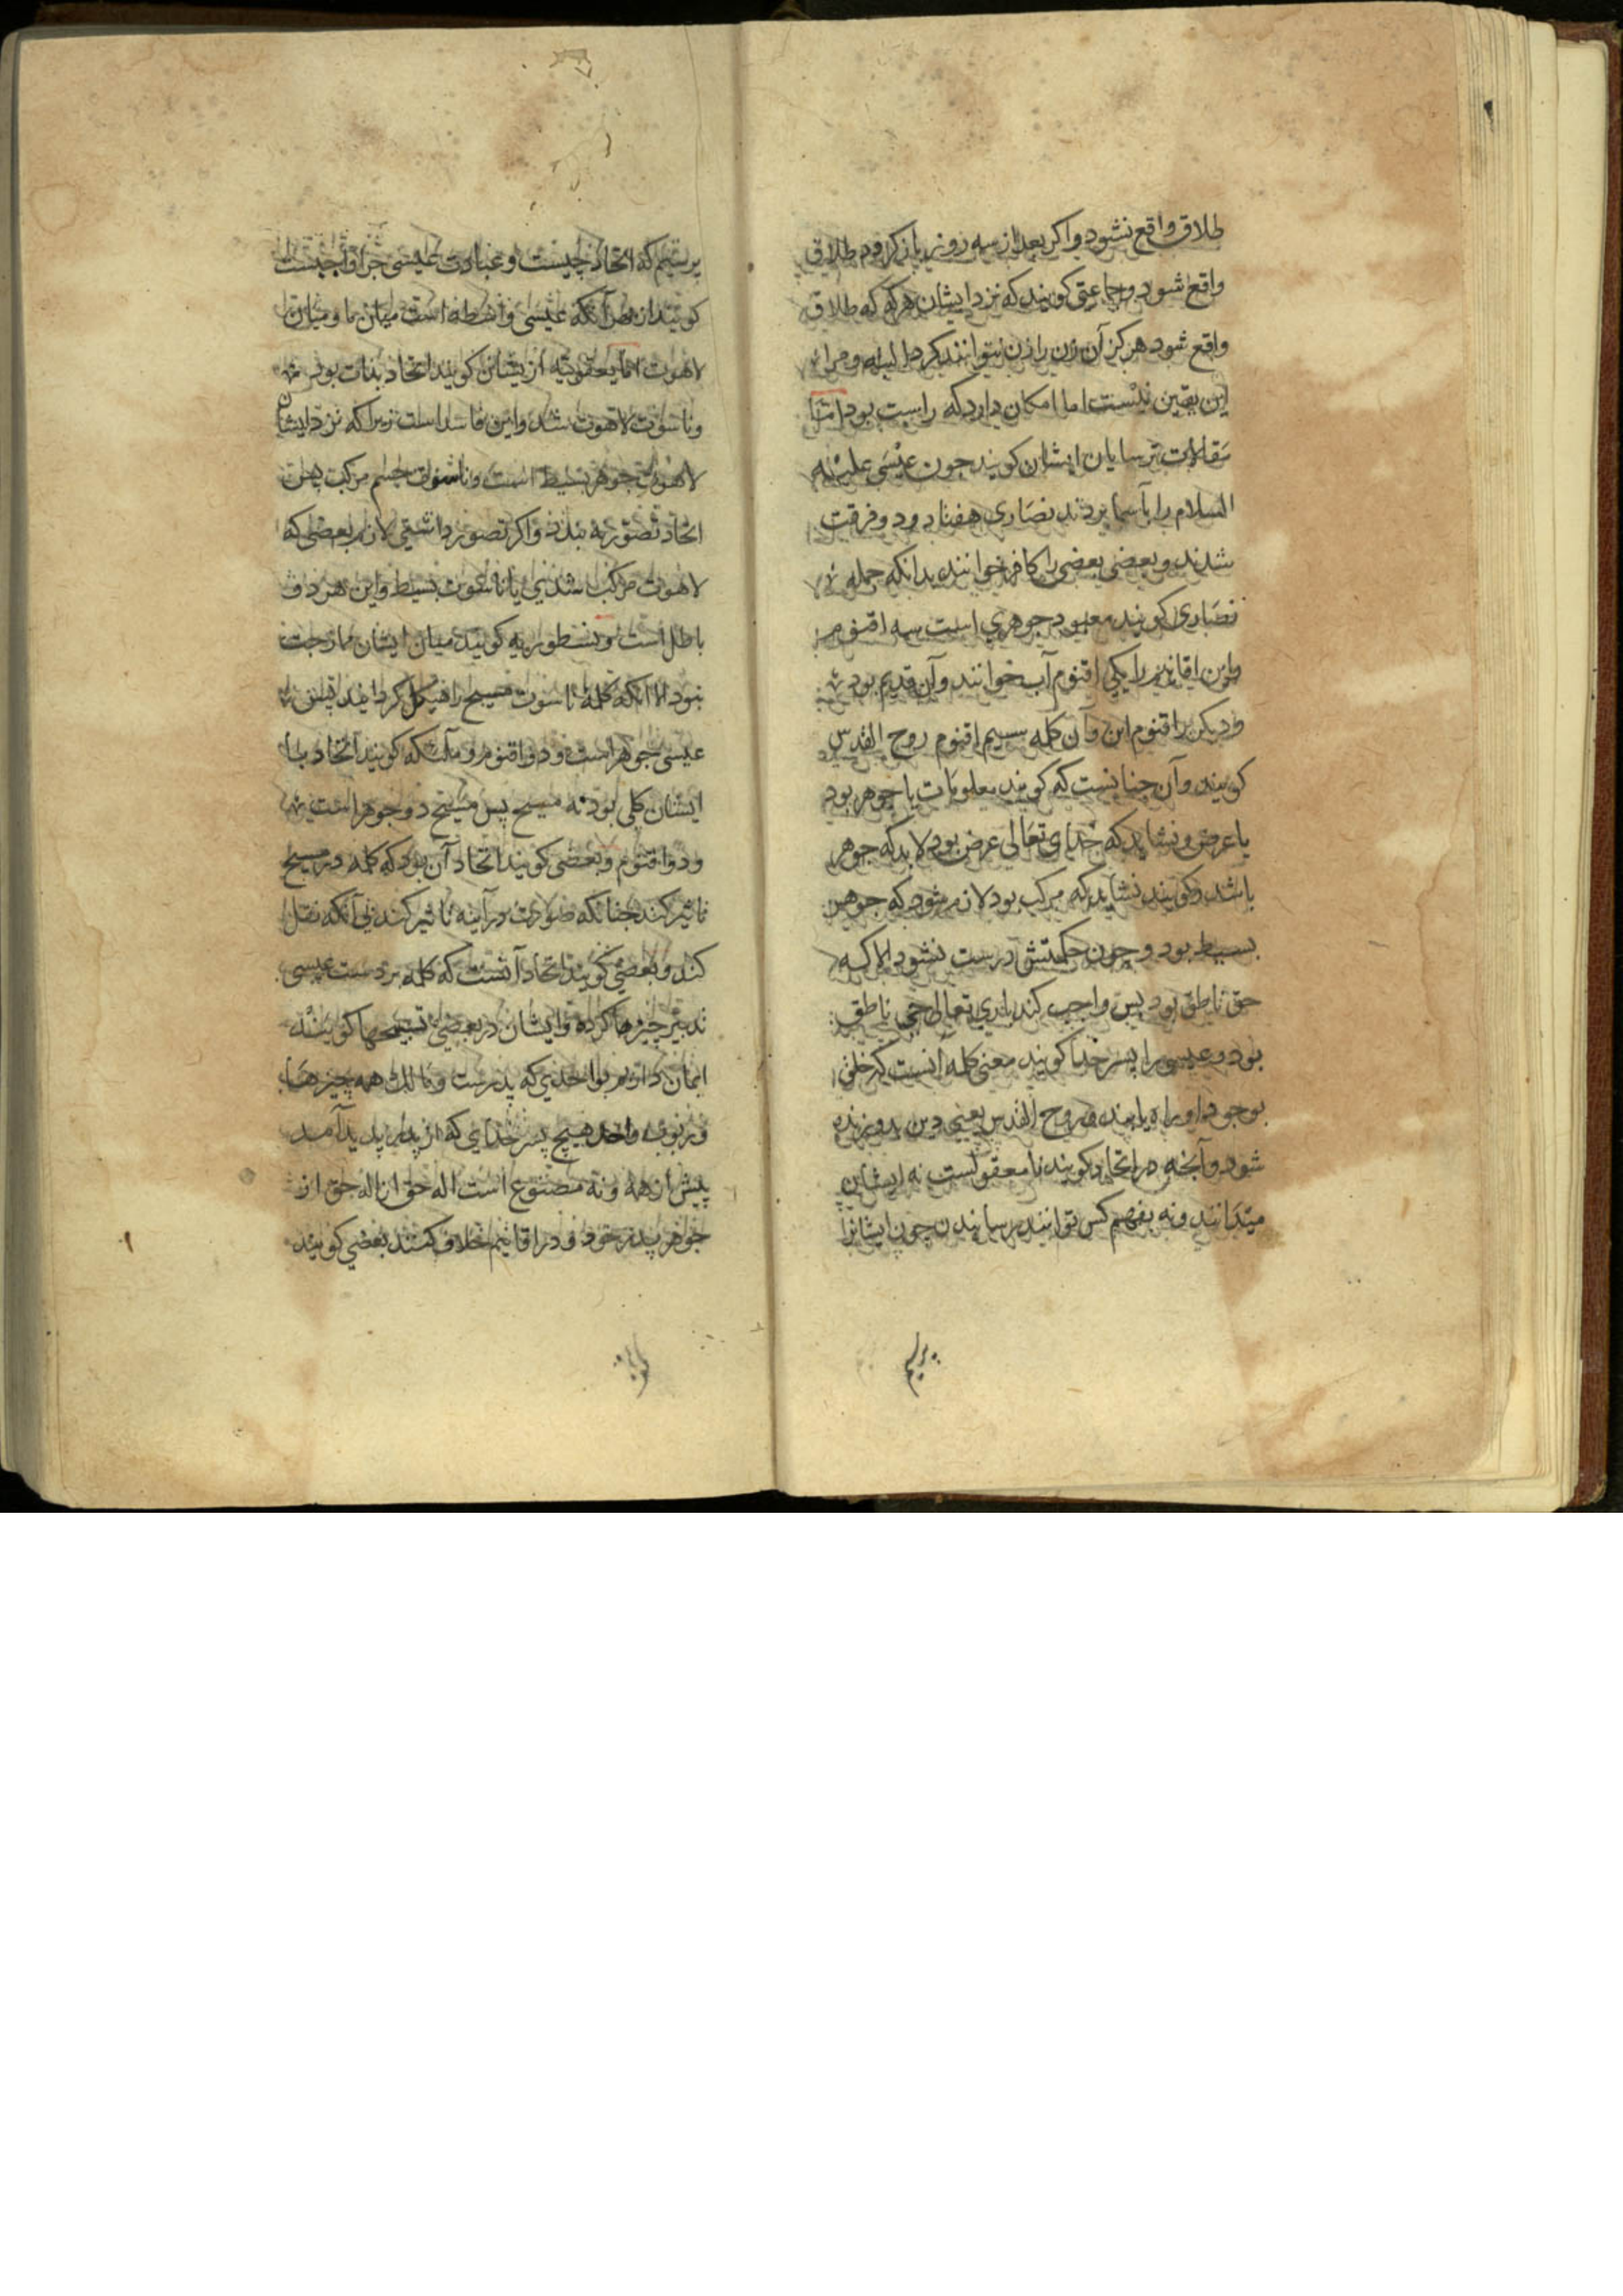 طلاق واقع نشود و اکر بعد از سه روز باز کرد طلاق
واقع شود و جماعتی کویند که نزد ایشان هرکه که طلاق
واقع شود هرکز آن زن را زن نتوانند کرد و مرا
این یقین نیست اما امکان دارد که راست بود امّا
مقالات ترسایان ایشان کویند چون عیسی علیه
السلام را بآسما بردند نصاری هفتاد و دو فرقت
شدند و بعضی بعضی را کافر خوانند بدانکه جمله
نصاری کویند معبود جوهری است سه اقنوم
و این اقانیم را یکی اقنوم آب خوانند و آن قدیم بود
و دیکر را قنوم ابن و آن کلمه سیم اقنوم روح القدس
کویند و آن چنانست که کویند معلومات یا جوهر بود
یا عرض و نشاید که خدای تعالی عرض بود لابد که جوهر
باشد و کویند نشاید که مرکب بود لازم شود که جوهر
بسیط بود و چون حکمتش درست نشود الا که
حق ناطق بود پس واجب کند باری تعالی حی ناطق
بود و عیسی را پسر خدا کویند معنی کلمه آنست که خلق
بوجود او راه یابند و روح القدس یعنی دین بدو زنده
شود و آنچه در اتحاد کویند نامعقولست نه ایشان
میدانند و نه بفهم کس توانند رسانیدن چون ایشانرا
پرسیم
پرسیم که اتحاد چیست و عبادت عیسی چرا واجبست
کویند از بهر آنکه عیسی واسطه است میان ما و میان
لاهوت امّا یعقوبیّه از یشان کویند اتحاد بذات بود
و ناسوت لاهوت شد و این فاسد است زیرا که نزد ایشان
لاهوت جوهر بسیط است و ناسوت جسم مرکب پس
اتحاد تصوّر نه بندد و اکر تصور داشتی لازم بعضی که
لاهوت مرکب شدی یا ناسوت بسیط و این هر دو
باطل است و نسطوریه کویند میان ایشان ممازجت
نبود الا آنکه کلمه ناسوت مسیح را هیکل کردانید پس
عیسی جوهر است و دو اقنوم و ملکیه کویند اتحاد با
ایشان کلی بود نه مسیح پس مسیح دو جوهر است
و دو اقنوم و بعضی کویند اتحاد آن بود که کلمه در مسیح
تاثیر کند چنانکه صورت در آینه تاثیر کند بی آنکه نقل
کند و بعضی کویند اتحاد آنست که کلمه بر دست عیسی
تدبیر چیزها کرده و ایشان در بعضی تسبیحها کویند
ایمان داریم بواحدی که پدرست و مالک همه چیزها
و بربوب واحد هیچ پسر خدای که از پدر پدید آمد
پیش از همه و نه مصنوع است اله حق از اله حق از
جوهر پدر خود و در اقانیم خلاف کنند بعضی کویند